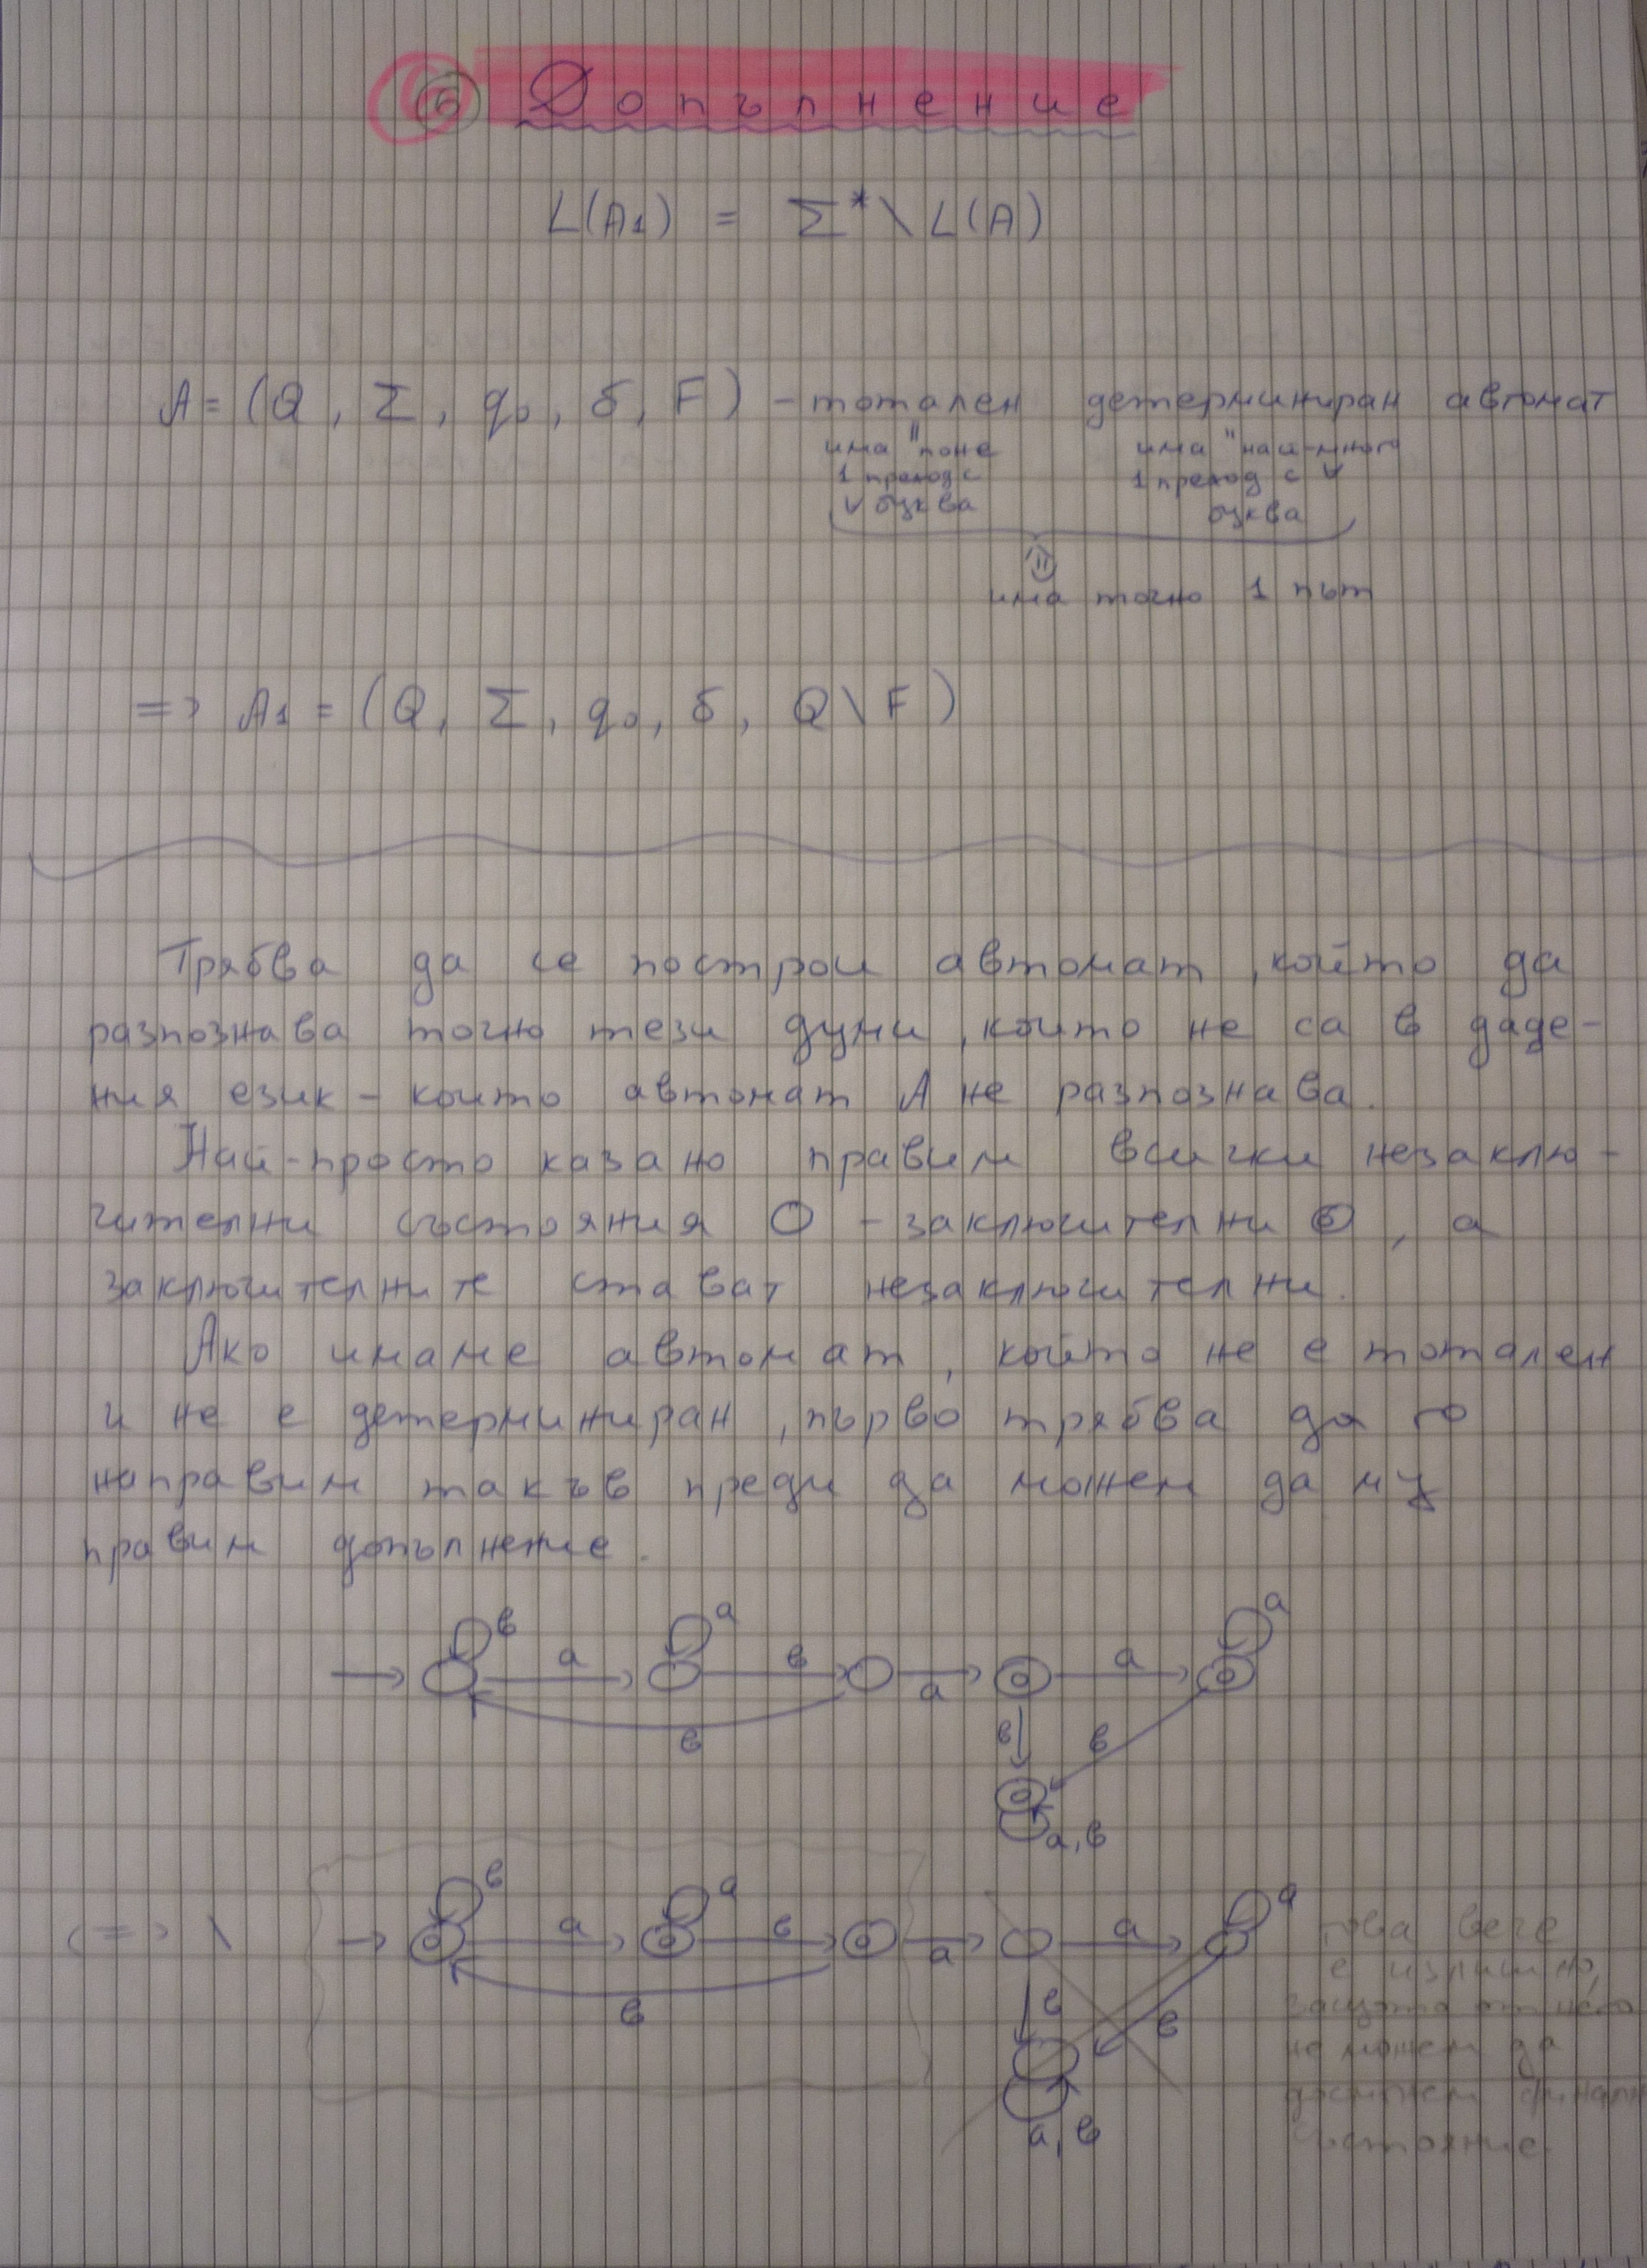 6 Допълнение
L(A1) = Σ* \ L(A)
A = (Q, Σ, q0, δ, F) - тотален детерминиран автомат
има поне има най-много
1 преход с 1 преход с ∀
∀ буква буква
има точно 1 път
=> A1 = (Q, Σ, q0, δ, Q\F)
Трябва да се построи автомат, който да
разпознава точно тези думи, които не са в даде-
ния език - които автомат A не разпознава.
Най-просто казано правим всички незаклю-
чителни състояния - заключителни, а
заключителните стават незаключителни.
Ако имаме автомат, който не е тотален
и не е детерминиран, първо трябва да го
направим такъв преди да можем да му
правим допълнение.
в a a
a в a a
в в в
a, в
в a a
(=> \ a в a a това вече
е излишно,
в в в защото от него
не можем да
достигнем финално
a, в състояние.